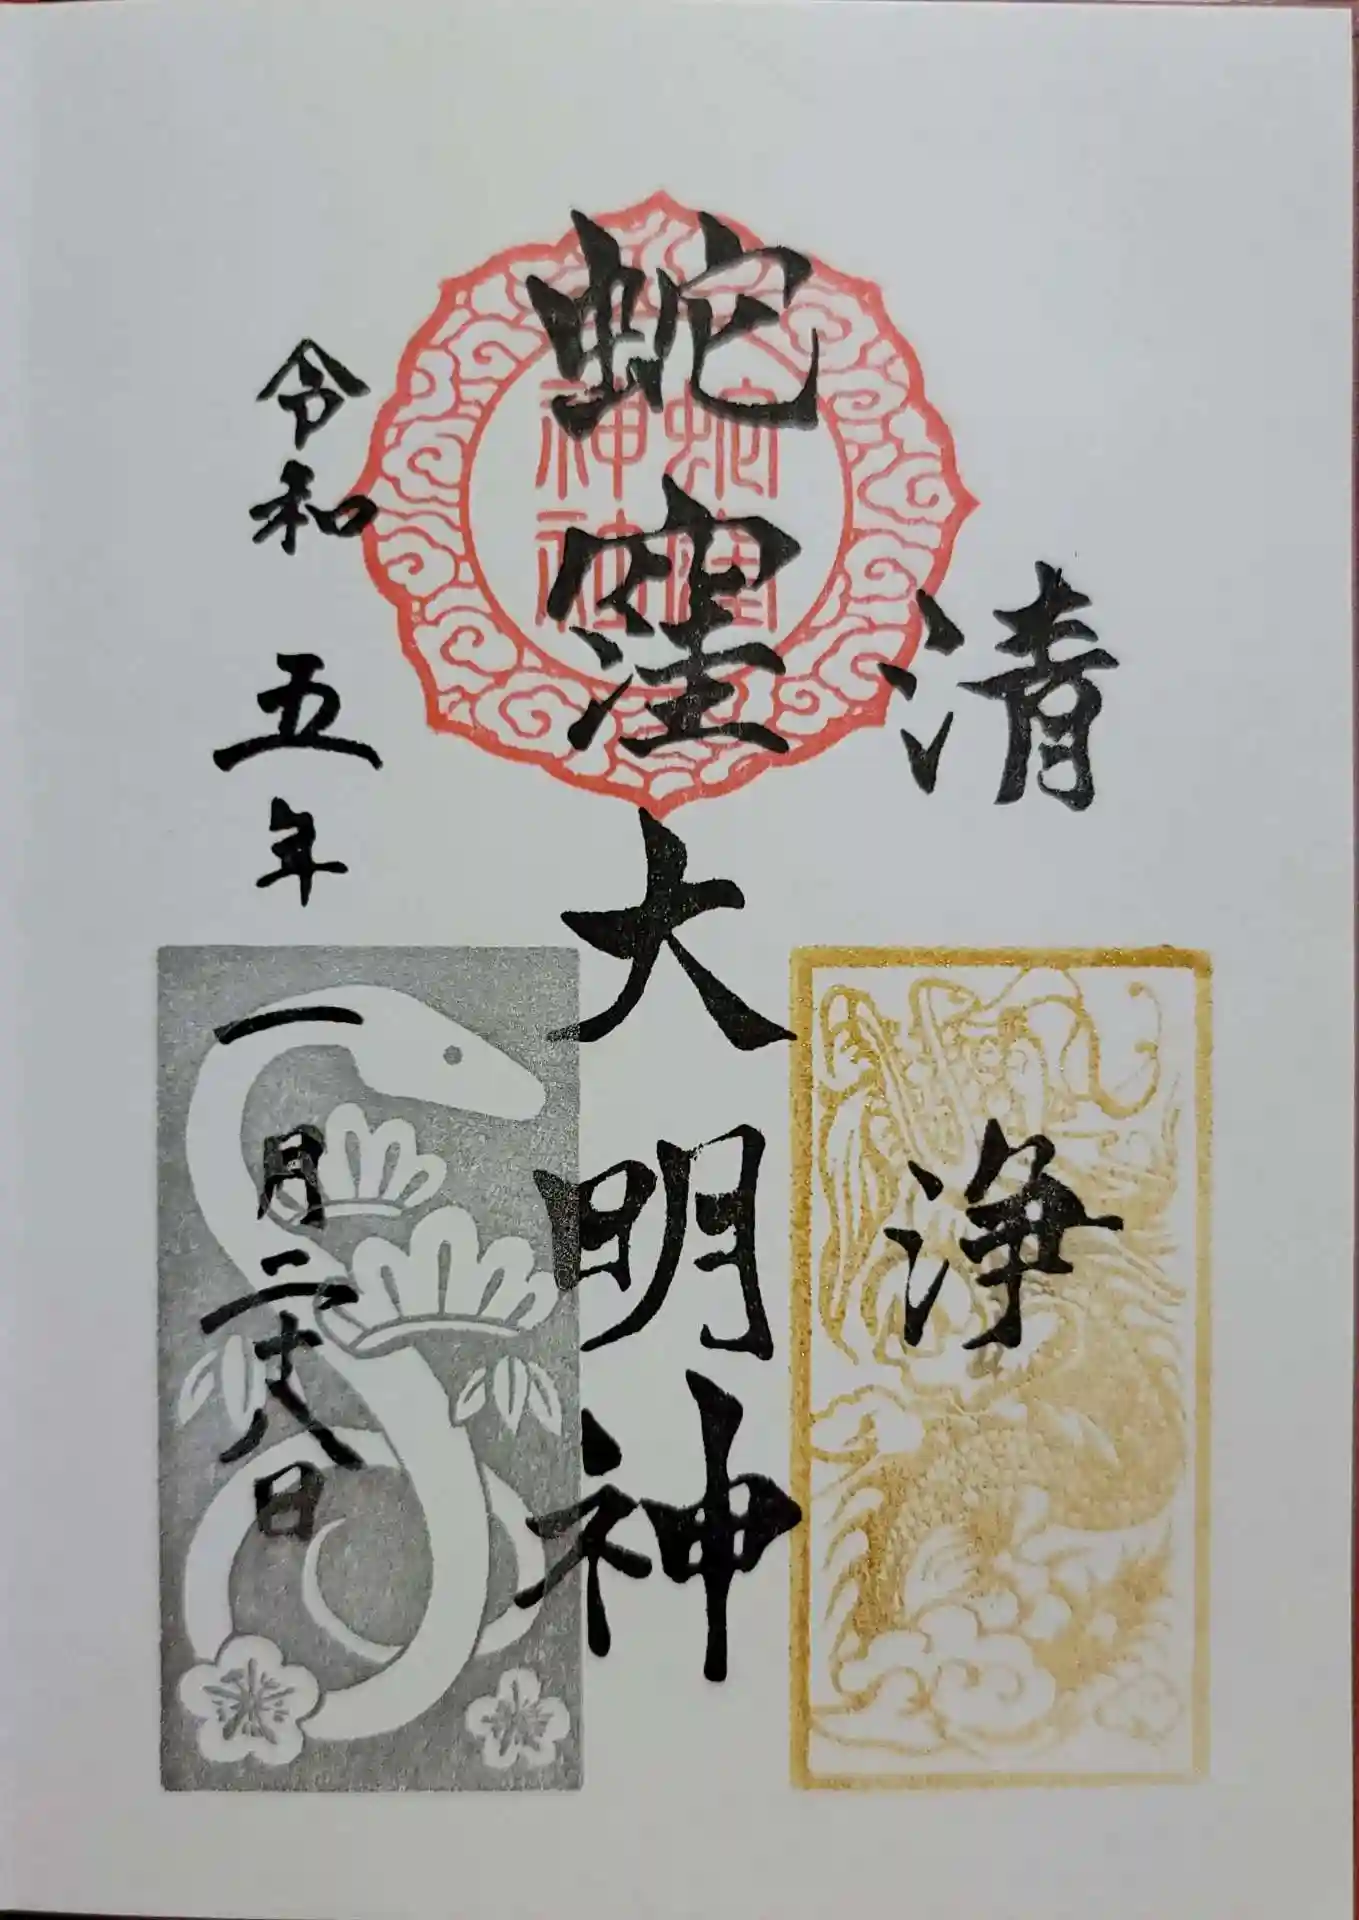 清浄
蛇窪大明神
蛇窪
神社
令和五年一月二十八日